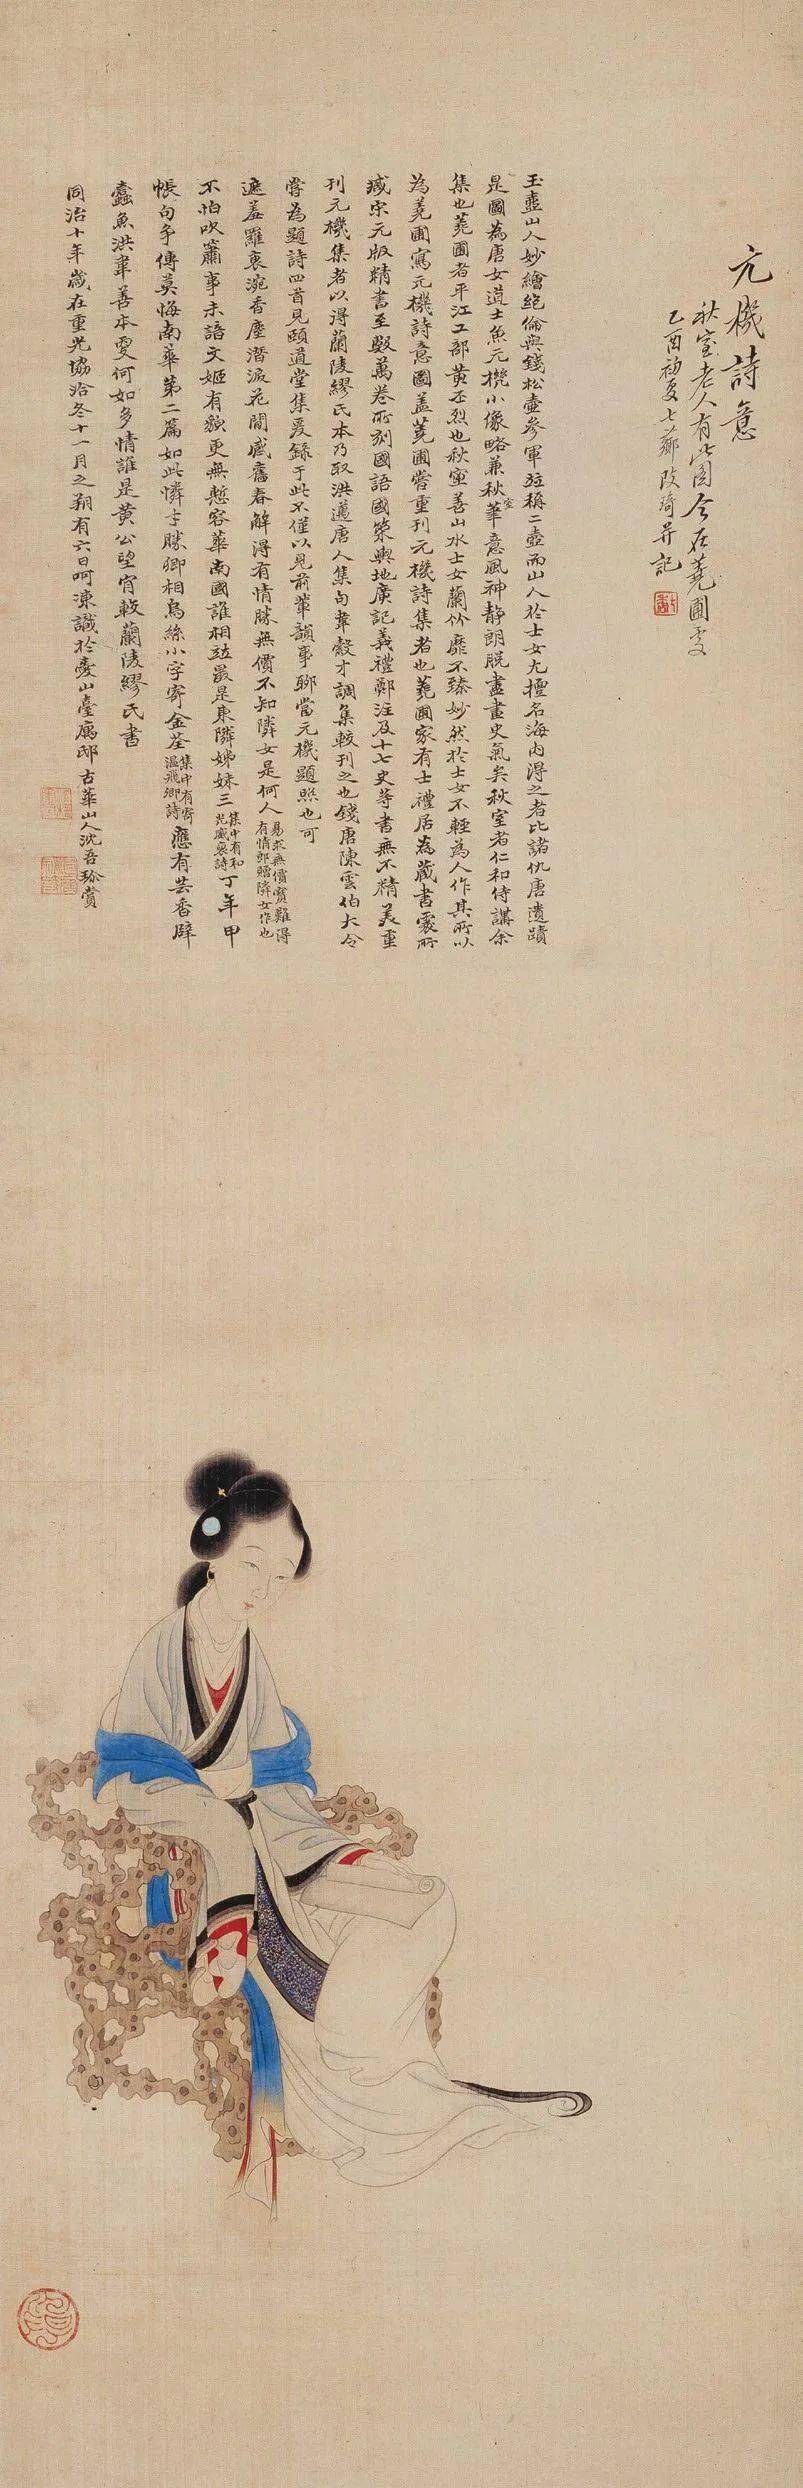 元機詩意
秋室老人有此圖今在蕘圃處
乙酉初夏七薌改琦并記
玉壺山人妙繪絶倫與錢松壺參軍竝稱二壺而山人於士女尤擅名海內得之者比諸仇唐遺蹟
是圖為唐女道士魚元機小像略兼秋室華意風神静朗脱盡畫史氣矣秋室者仁和侍講余
集也蕘圃者平江工部黃丕烈也秋室善山水士女蘭竹靡不臻妙然於士女不輕為人作其所以
為蕘圃寫元機詩意圖蓋蕘圃嘗重刊元機詩集者也蕘圃家有士禮居為藏書處所
臧宋元版精書至數萬卷所刻國語國策輿地廣記義禮鄭注及十七史等書無不精美重
刊元機集者以得蘭陵繆氏本乃取洪邁唐人集句韋縠才調集較刊之也錢唐陳雲伯大令
嘗為題詩四首見頤道堂集爰錄于此不僅以見前輩韻事聊當元機題照也可
遮羞羅袖浣香塵潛淚花間感舊春解得有情勝無價不知隣女是何人易求無價寶難得有情郎贈隣女作也
不怕吹簫事未諧文姬有貌更無慙容華南國誰相竝最是東隣姊妹三集中有和光威裒詩丁年甲
帳句争傳莫悔南華第二篇如此憐才勝卿相烏絲小字寄金荃集中有寄温飛卿詩應有芸香辟
蠹魚洪韋善本更何如多情誰是黃公望宵較蘭陵繆氏書
同治十年歲在重光協洽冬十一月之朔有六日呵凍識於愛山臺寓邸古華山人沈吾珍賞